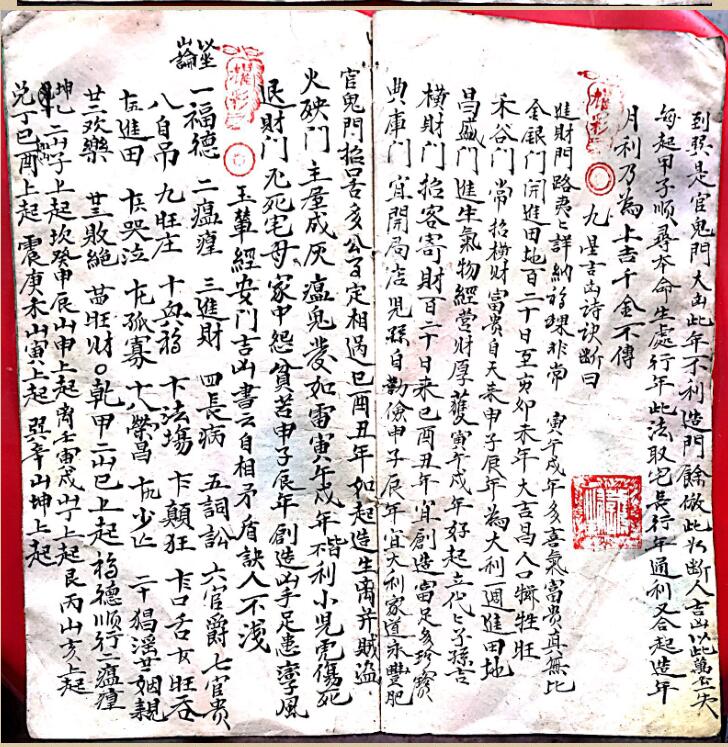 到孫是官鬼門大凶此年不利造門餘倣此以斷人吉凶以此萬無失
每起甲子順尋本命生處行年此法取宅長行年通利又合起造年
月利乃為上吉千金不傳
九星吉凶詩訣斷曰
進財門路夷夷詳納福禄非常 寅午戌年多喜氣富貴真無比
金銀門開進田地百二十日至亥卯未年大吉昌人口犧牲旺
禾谷門常招横財富貴自天來申子辰年為大利週進田地
昌盛門進生氣物經营财厚蒦寅午戌年好起立代代子孫吉
横财門招客寄財百二十日来巳酉丑年宜創造富足多珍寳
典庫門宜開局店兒孫自勤儉申子辰年宜大利家道永豐肥
官鬼門招呂多公事定相遇巳酉丑年如起造生离并賊盗
火殃門主產成灰瘟鬼發如雷寅午戌年皆不利小兒黿傷死
退财門兄死宅母家中怨貧苦申子辰年創造凶手足患孿風
玉輦經安門吉凶書云自相矛盾訣人不浅
以坐山論
一福德 二瘟㾮 三進財 四長病 五詞訟 六官爵 七官贵
八自吊 九旺庄 十典福 十一法場 十二顛狂 十三口舌 十四旺蚕
十五進田 十六哭泣 十七孤寡 十八榮昌 十九少亡 二十猖淫 廿一姻親
廿二欢樂 廿三敗絕 廿四旺财○乾甲二山巳上起 福德顺行二瘟㾮
坤乙二山子上起坎癸申辰山申上起离壬寅戌山丁上起艮丙山亥上起
兑丁巳酉上起 震庚未山寅上起 巽辛山坤上起